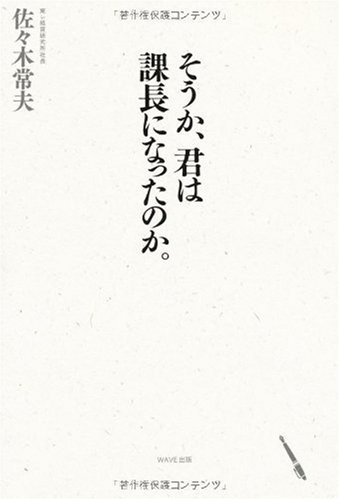 「著作権保護コンテンツ」
そうか、君は
課長になったのか。
東レ経営研究所社長
佐々木常夫
WAVE出版
「著作権保護コンテンツ」